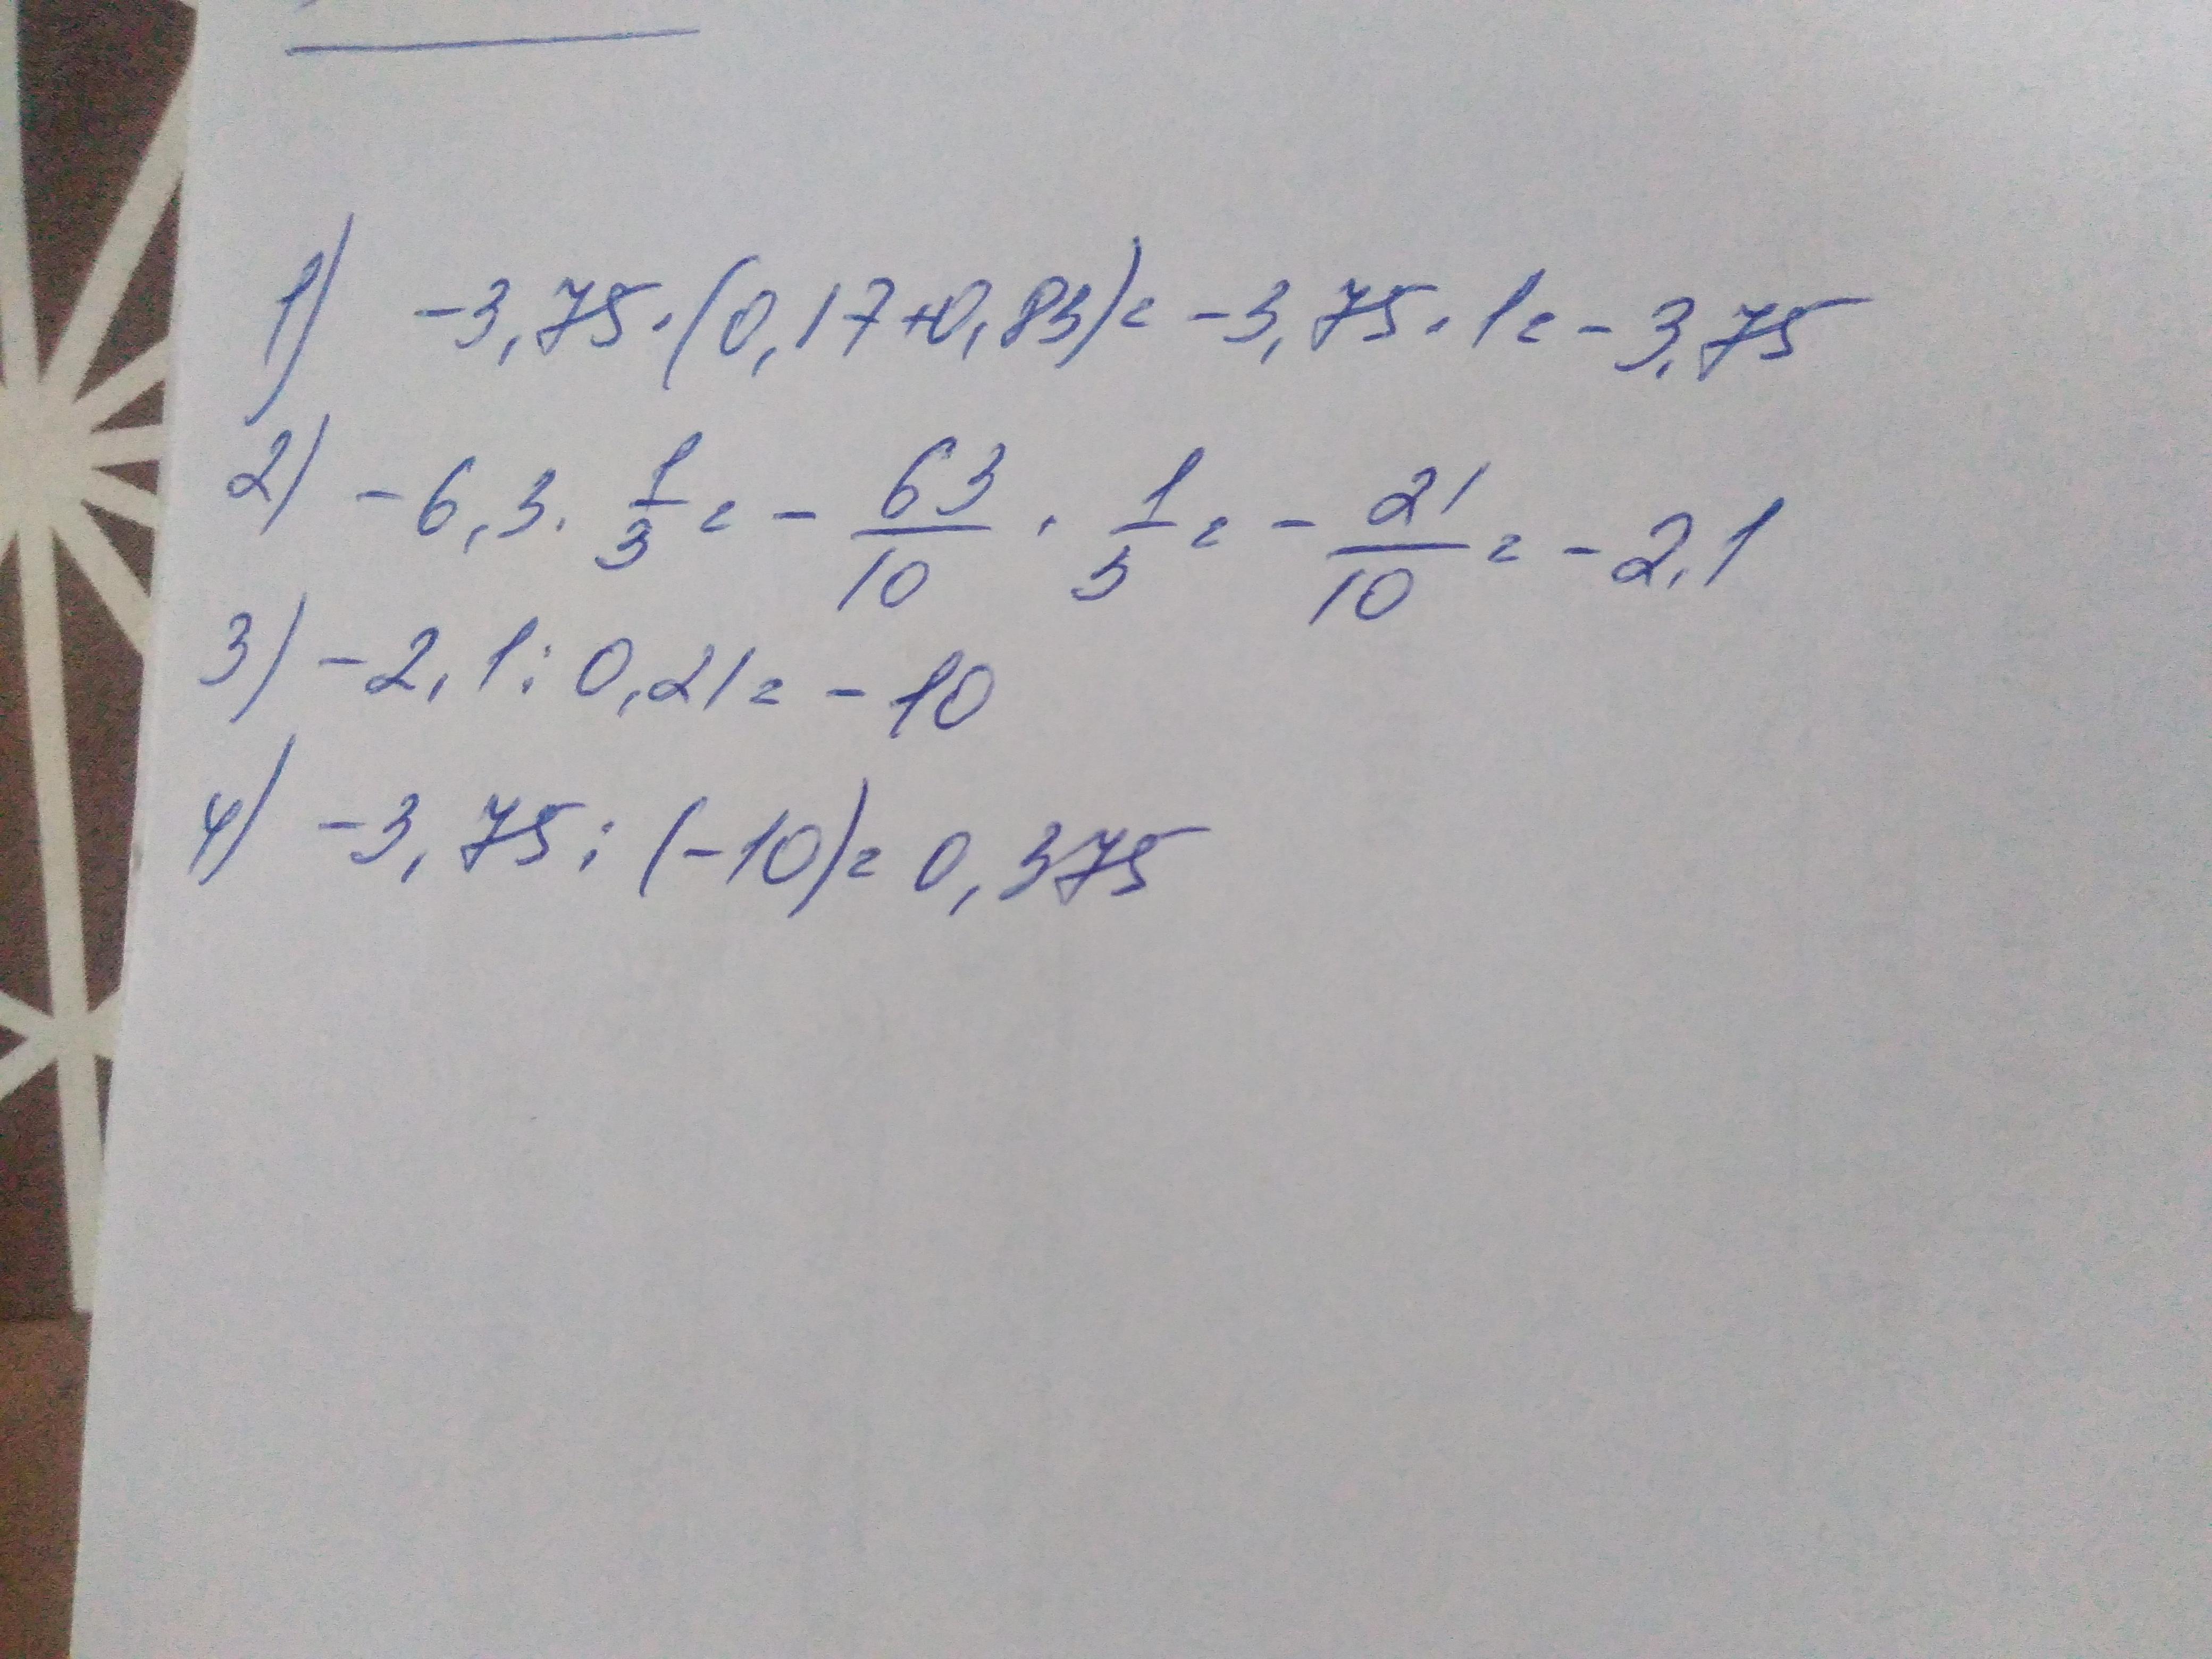 1) -3,75·(0,17+0,83)= -3,75·1= -3,75
2) -6,3· 1/3 = - 63/10 · 1/3 = - 21/10 = -2,1
3) -2,1:0,21= -10
4) -3,75:(-10)= 0,375